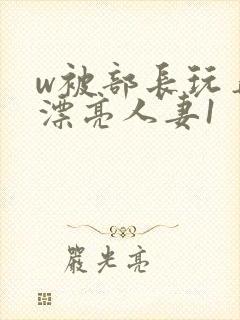 w被部長玩
漂亮人妻1
嚴光亮